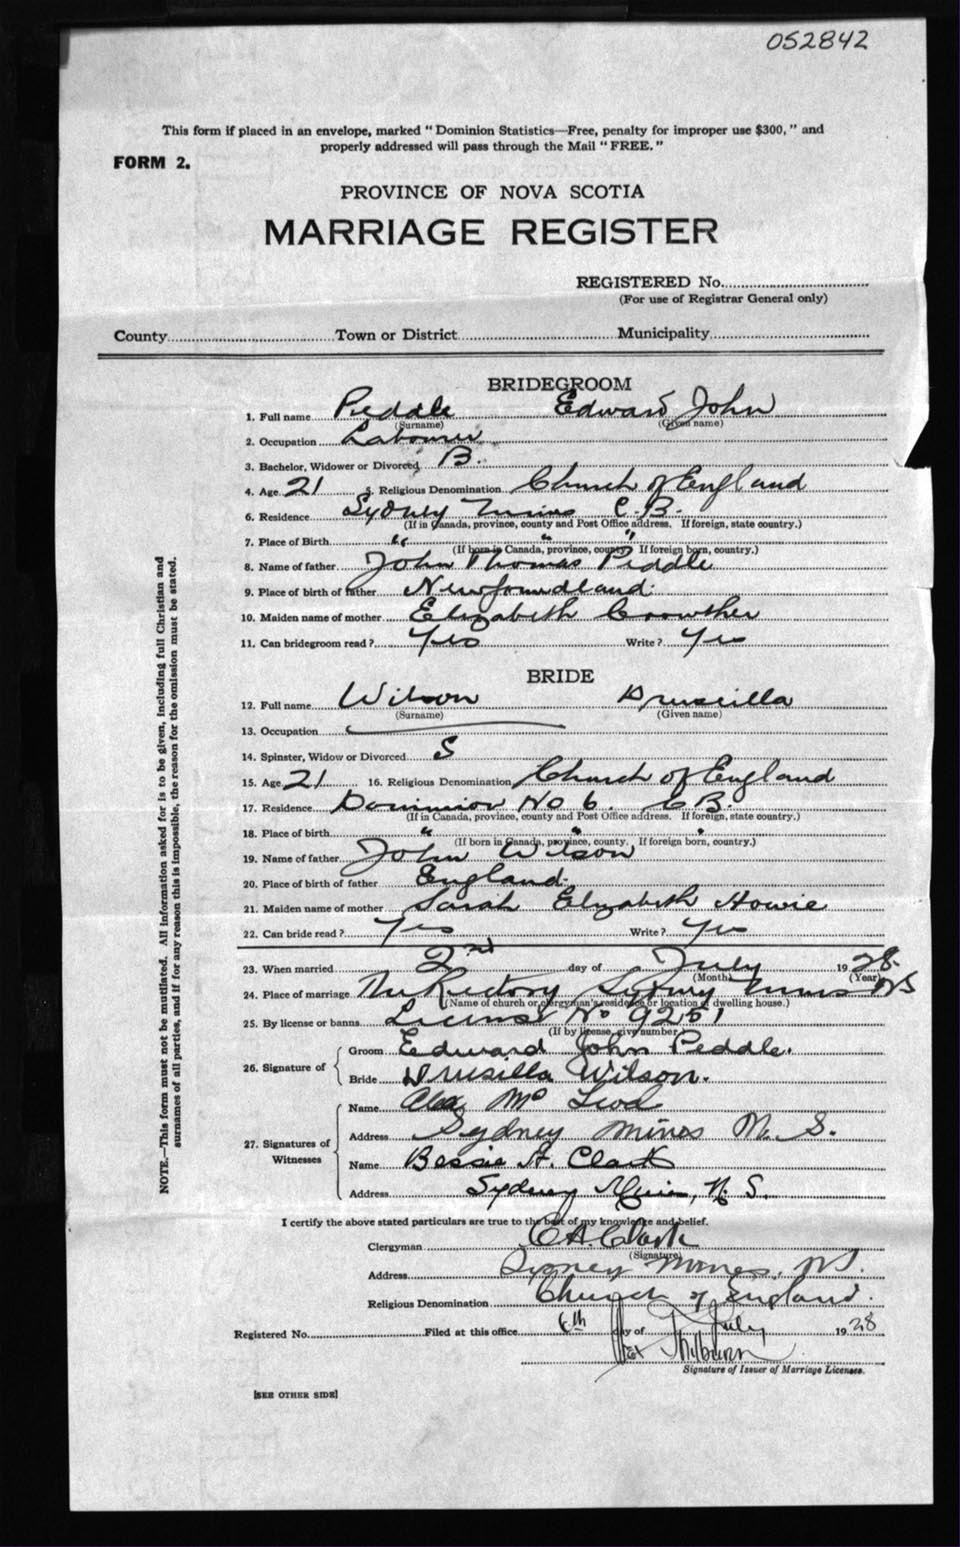 052842
This form if placed in an envelope, marked "Dominion Statistics—Free, penalty for improper use $300," and
properly addressed will pass through the Mail "FREE."
FORM 2.
PROVINCE OF NOVA SCOTIA
MARRIAGE REGISTER
REGISTERED No.
(For use of Registrar General only)
County Town or District Municipality
BRIDEGROOM
1. Full name Peddle Edward John
(Surname) (Given name)
2. Occupation Labourer
3. Bachelor, Widower or Divorced B.
4. Age 21 5. Religious Denomination Church of England
6. Residence Sydney Mines C.B.
(If in Canada, province, county and Post Office address. If foreign, state country.)
7. Place of Birth " " "
(If born in Canada, province, county? If foreign born, country.)
8. Name of father John Thomas Peddle
9. Place of birth of father Newfoundland.
10. Maiden name of mother Elizabeth Crowther
11. Can bridegroom read? Yes Write? Yes
BRIDE
12. Full name Wilson Druscilla
(Surname) (Given name)
13. Occupation
14. Spinster, Widow or Divorced S
15. Age 21 16. Religious Denomination Church of England
17. Residence Dominion No 6. C B.
(If in Canada, province, county and Post Office address. If foreign, state country.)
18. Place of birth " " "
(If born in Canada, province, county. If foreign born, country.)
19. Name of father John Wilson
20. Place of birth of father England.
21. Maiden name of mother Sarah Elizabeth Howie
22. Can bride read? Yes Write? Yes
23. When married 2nd day of July 1928.
(Month) (Year)
24. Place of marriage The Rectory Sydney Mines NS
(Name of church or clergyman's residence or location of dwelling house.)
25. By license or banns License No 9251
(If by license, give number)
26. Signature of Groom Edward John Peddle.
Bride Drusilla Wilson.
27. Signatures of Witnesses Name Alex Mc Leod
Address Sydney Mines N. S.
Name Bessie A. Clark
Address Sydney Mines, N. S.
I certify the above stated particulars are true to the best of my knowledge and belief.
Clergyman C A. Clark
(Signature)
Address Sydney Mines, N.S.
Religious Denomination Church of England.
Registered No. Filed at this office 6th day of July 1928
Signature of Issuer of Marriage Licenses.
[SEE OTHER SIDE]
NOTE.—This form must not be mutilated. All information asked for is to be given, including full Christian and
surnames of all parties, and if for any reason this is impossible, the reason for the omission must be stated.